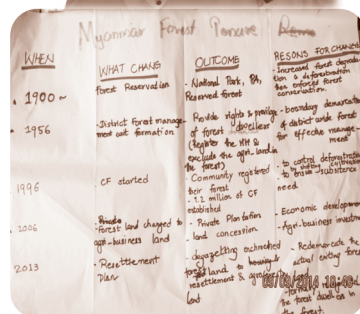 Myanmar Forest Tenure
WHEN
WHAT CHANG
OUTCOME
RESONS FOR CHANGE
1900 ~
Forest Reservation
- National Park, PA,
Reserved forest
- Increased forest degrada
tion & deforestation
then enforced forest
conservation.
1956
- District forest manage-
ment unit formation
- Provide rights & privilege
of forest dwellers
(Register the HH &
exclude the agri. land in
the forest)
- boundary demarcate
of district wide forest
for effective manage
ment
1996
- CF started
- Community registered
their forest
- 1.2 million of CF
established
- to control deforestation
to ensure subsistence
need
2006
- Forest land changed to
agri-business land
- Private Plantation
- land concession
- Economic developmen
- Agri-business investm
2013
- Resettlement
Plan
- degazetting encroached
forest land to
resettlement &
land
- Redemarcate the
actual existing fores
the forest dwellers in
the forest.